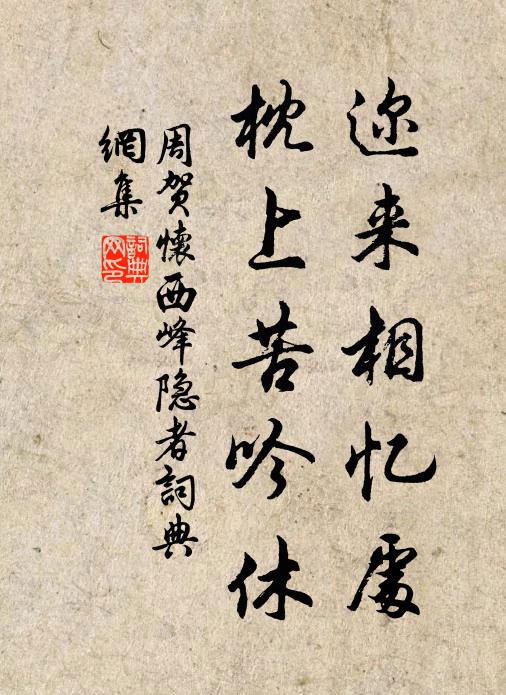 迩来相忆處
枕上苦吟休
周贺懷西峰隐者詞典
網集
詞典网印